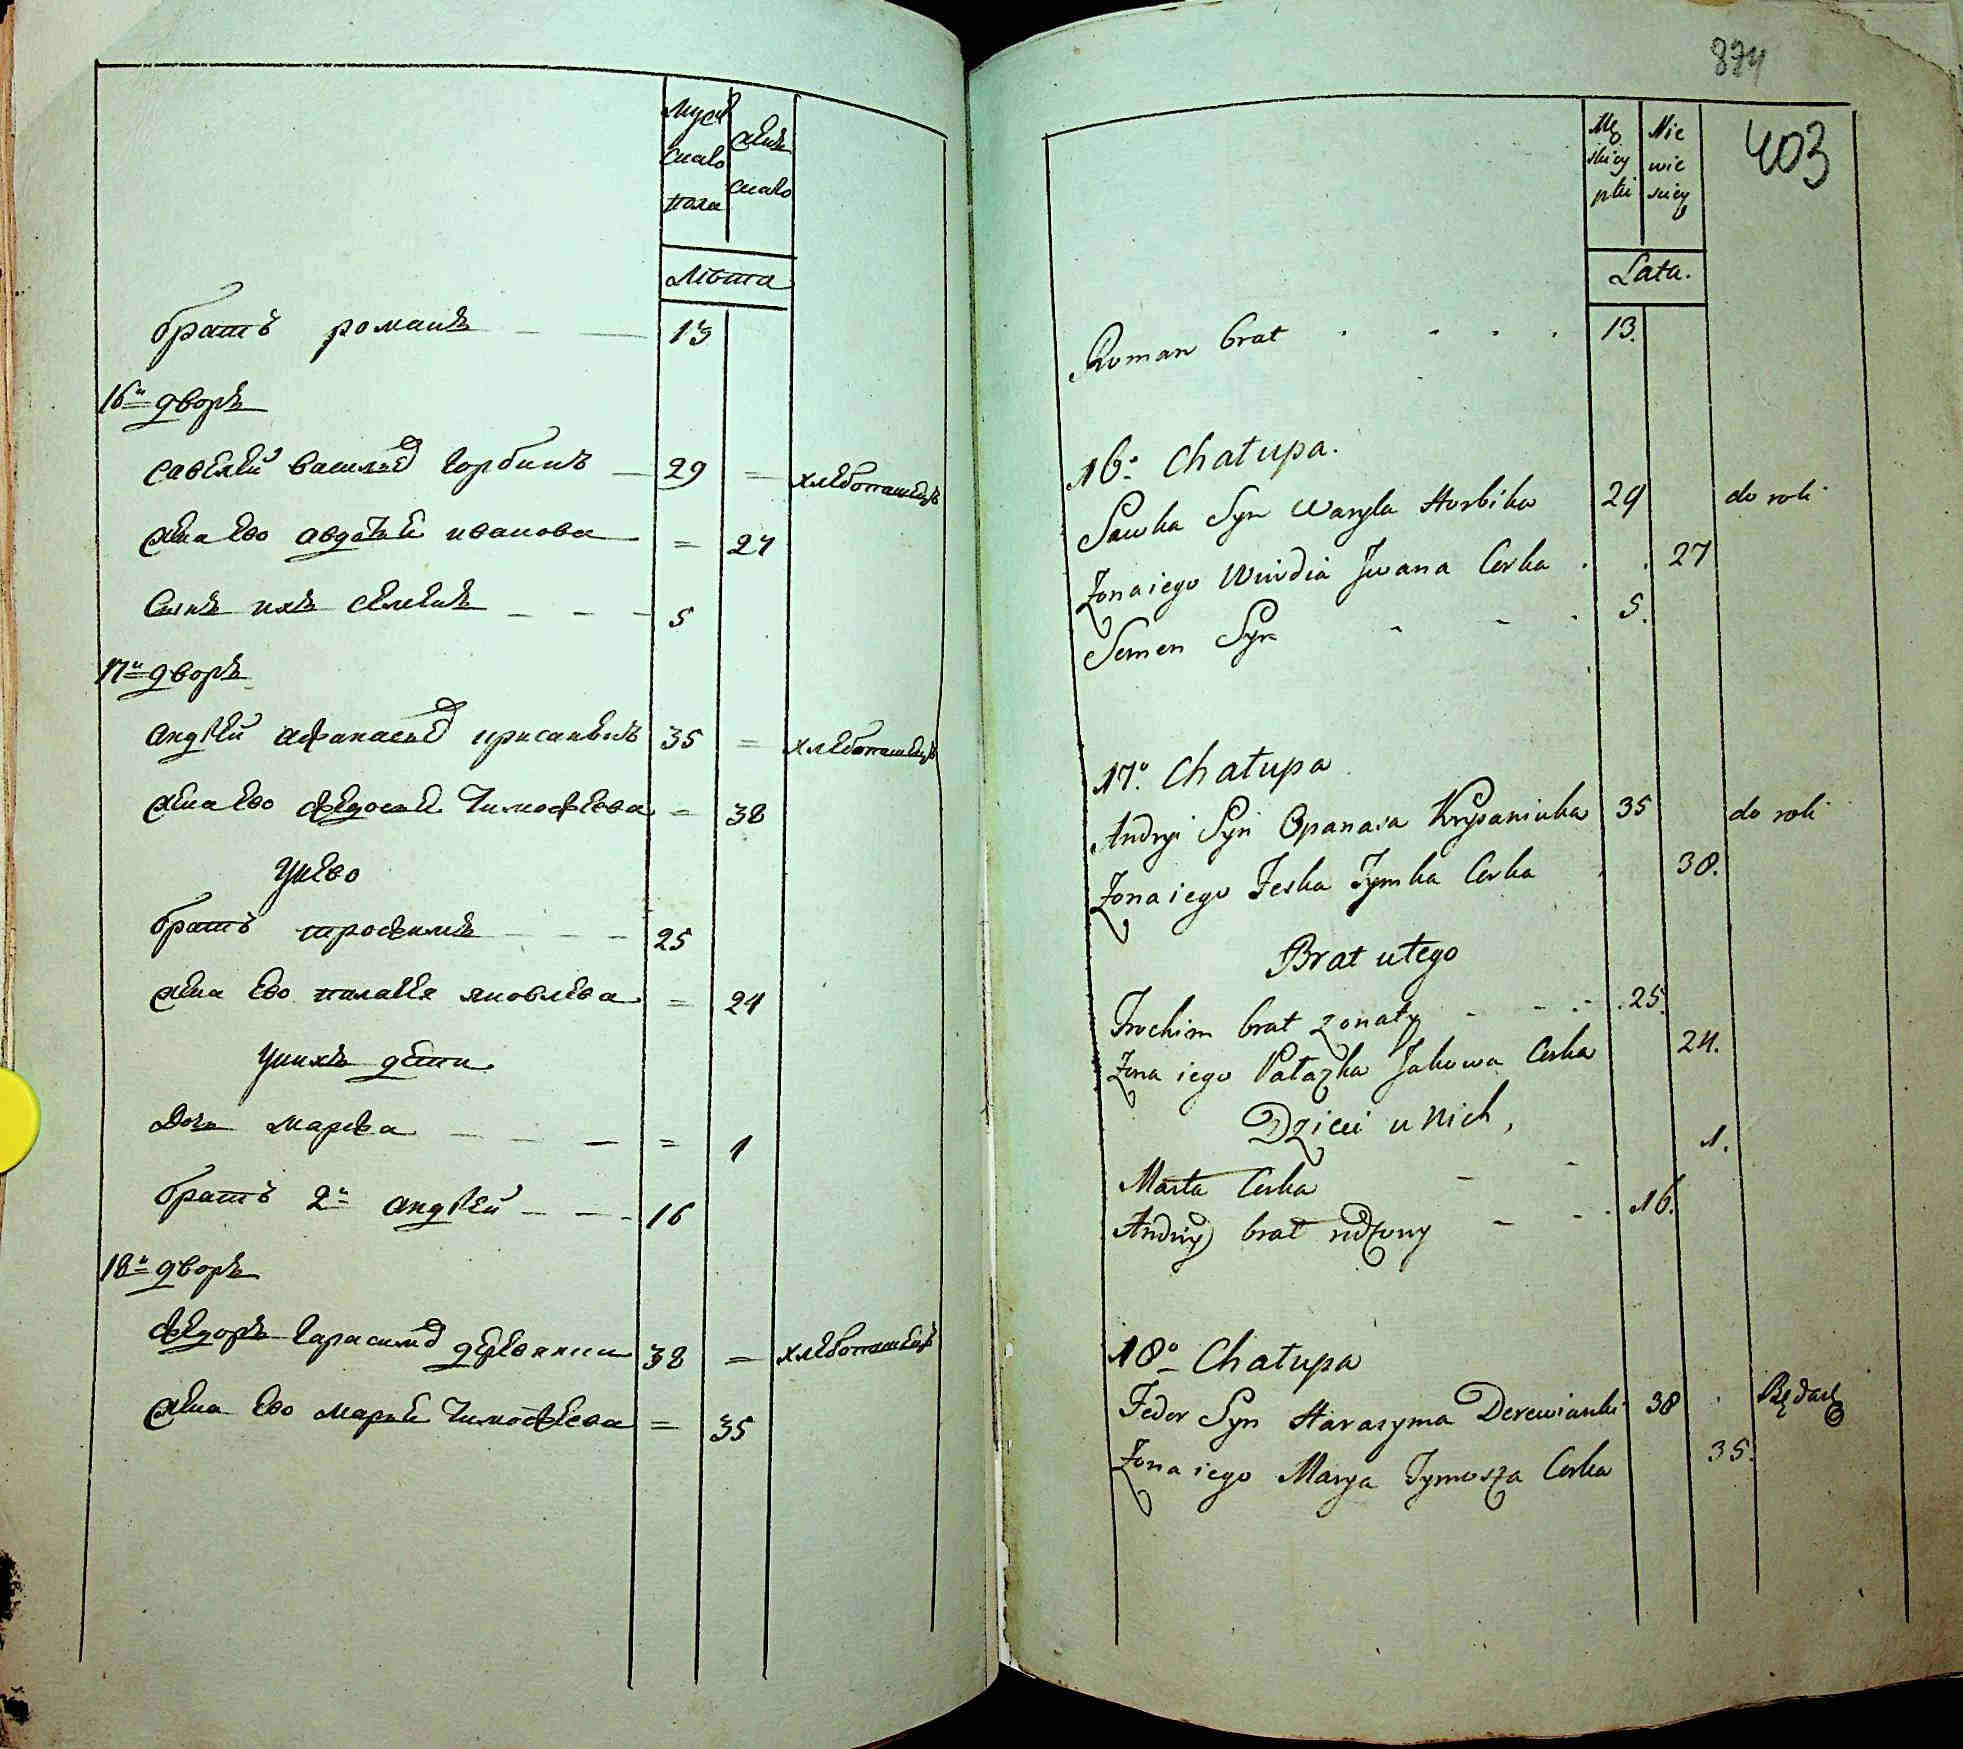 Муж
ска­го
пола
женс
каго
Лѣта
братъ романъ — — 13
16й дворъ
савелей василиев горбикъ — 29 = хлебопашецъ
жена ево авдотия иванова = 27
Сынъ ихъ семенъ — — — 5
17й дворъ
андрей афанасиев крисанюкъ 35 = хлебопашецъ
жена ево федосия тимофеева = 38
У нево
братъ трофимъ — — — 25
жена ево палагея яковлева = 24
У нихъ дети
дочь марфа — — — = 1
братъ 2й андрей — — — 16
18й дворъ
федоръ гарасимов деревянки 38 = хлебопашецъ
жена ево мария тимофеева = 35
874
403
Mę
skiey
płci
Nie
wie
sciey
Lata.
Roman brat 13.
16o Chałupa.
Sawka Syn Wasyla Horbika 29 do roli
Zona iego Iwana Corka 27
Semen Syn 5.
17o Chałupa
Andryi Syn Opanasa Krysaniuka 35 do roli
Zona iego Feska Tymka Corka 38.
Brat u tego
Trochim brat zonaty 25.
Zona iego Pałazka Jakowa Corka 24.
Dzieci u Nich,
Marta Corka 1.
Andryi brat rodzony 16.
18o Chałupa
Fedor Syn Harasyma Derewianki 38
Zona iego Marya Tymosza Corka 35.